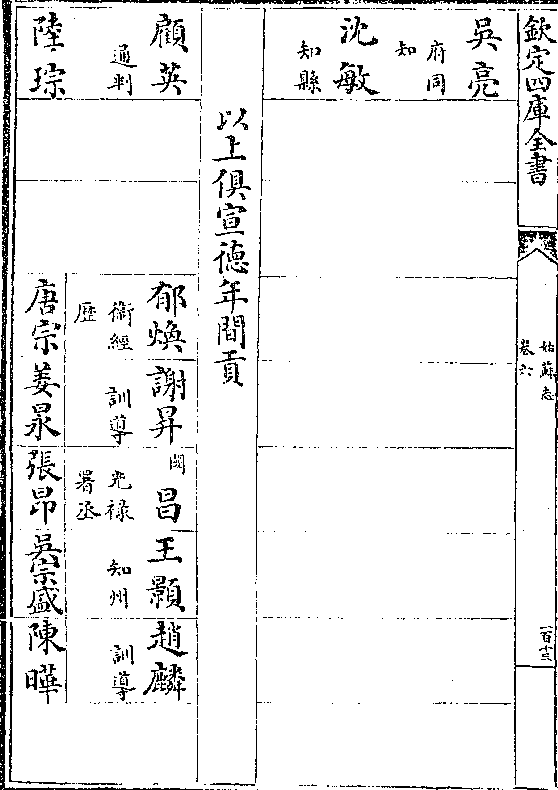 欽定四庫全書
姑蘇志
卷六
一百十三
吳亮
府同
知
沈敏
知縣
以上俱宣德年間貢
顧英
郁煥
謝昇
國
昌
王顥
趙麟
通判
衞經
歷
訓導
光禄
署丞
知州
訓導
陸琮
唐宗
姜泉
張昂
吳宗盛
陳曄